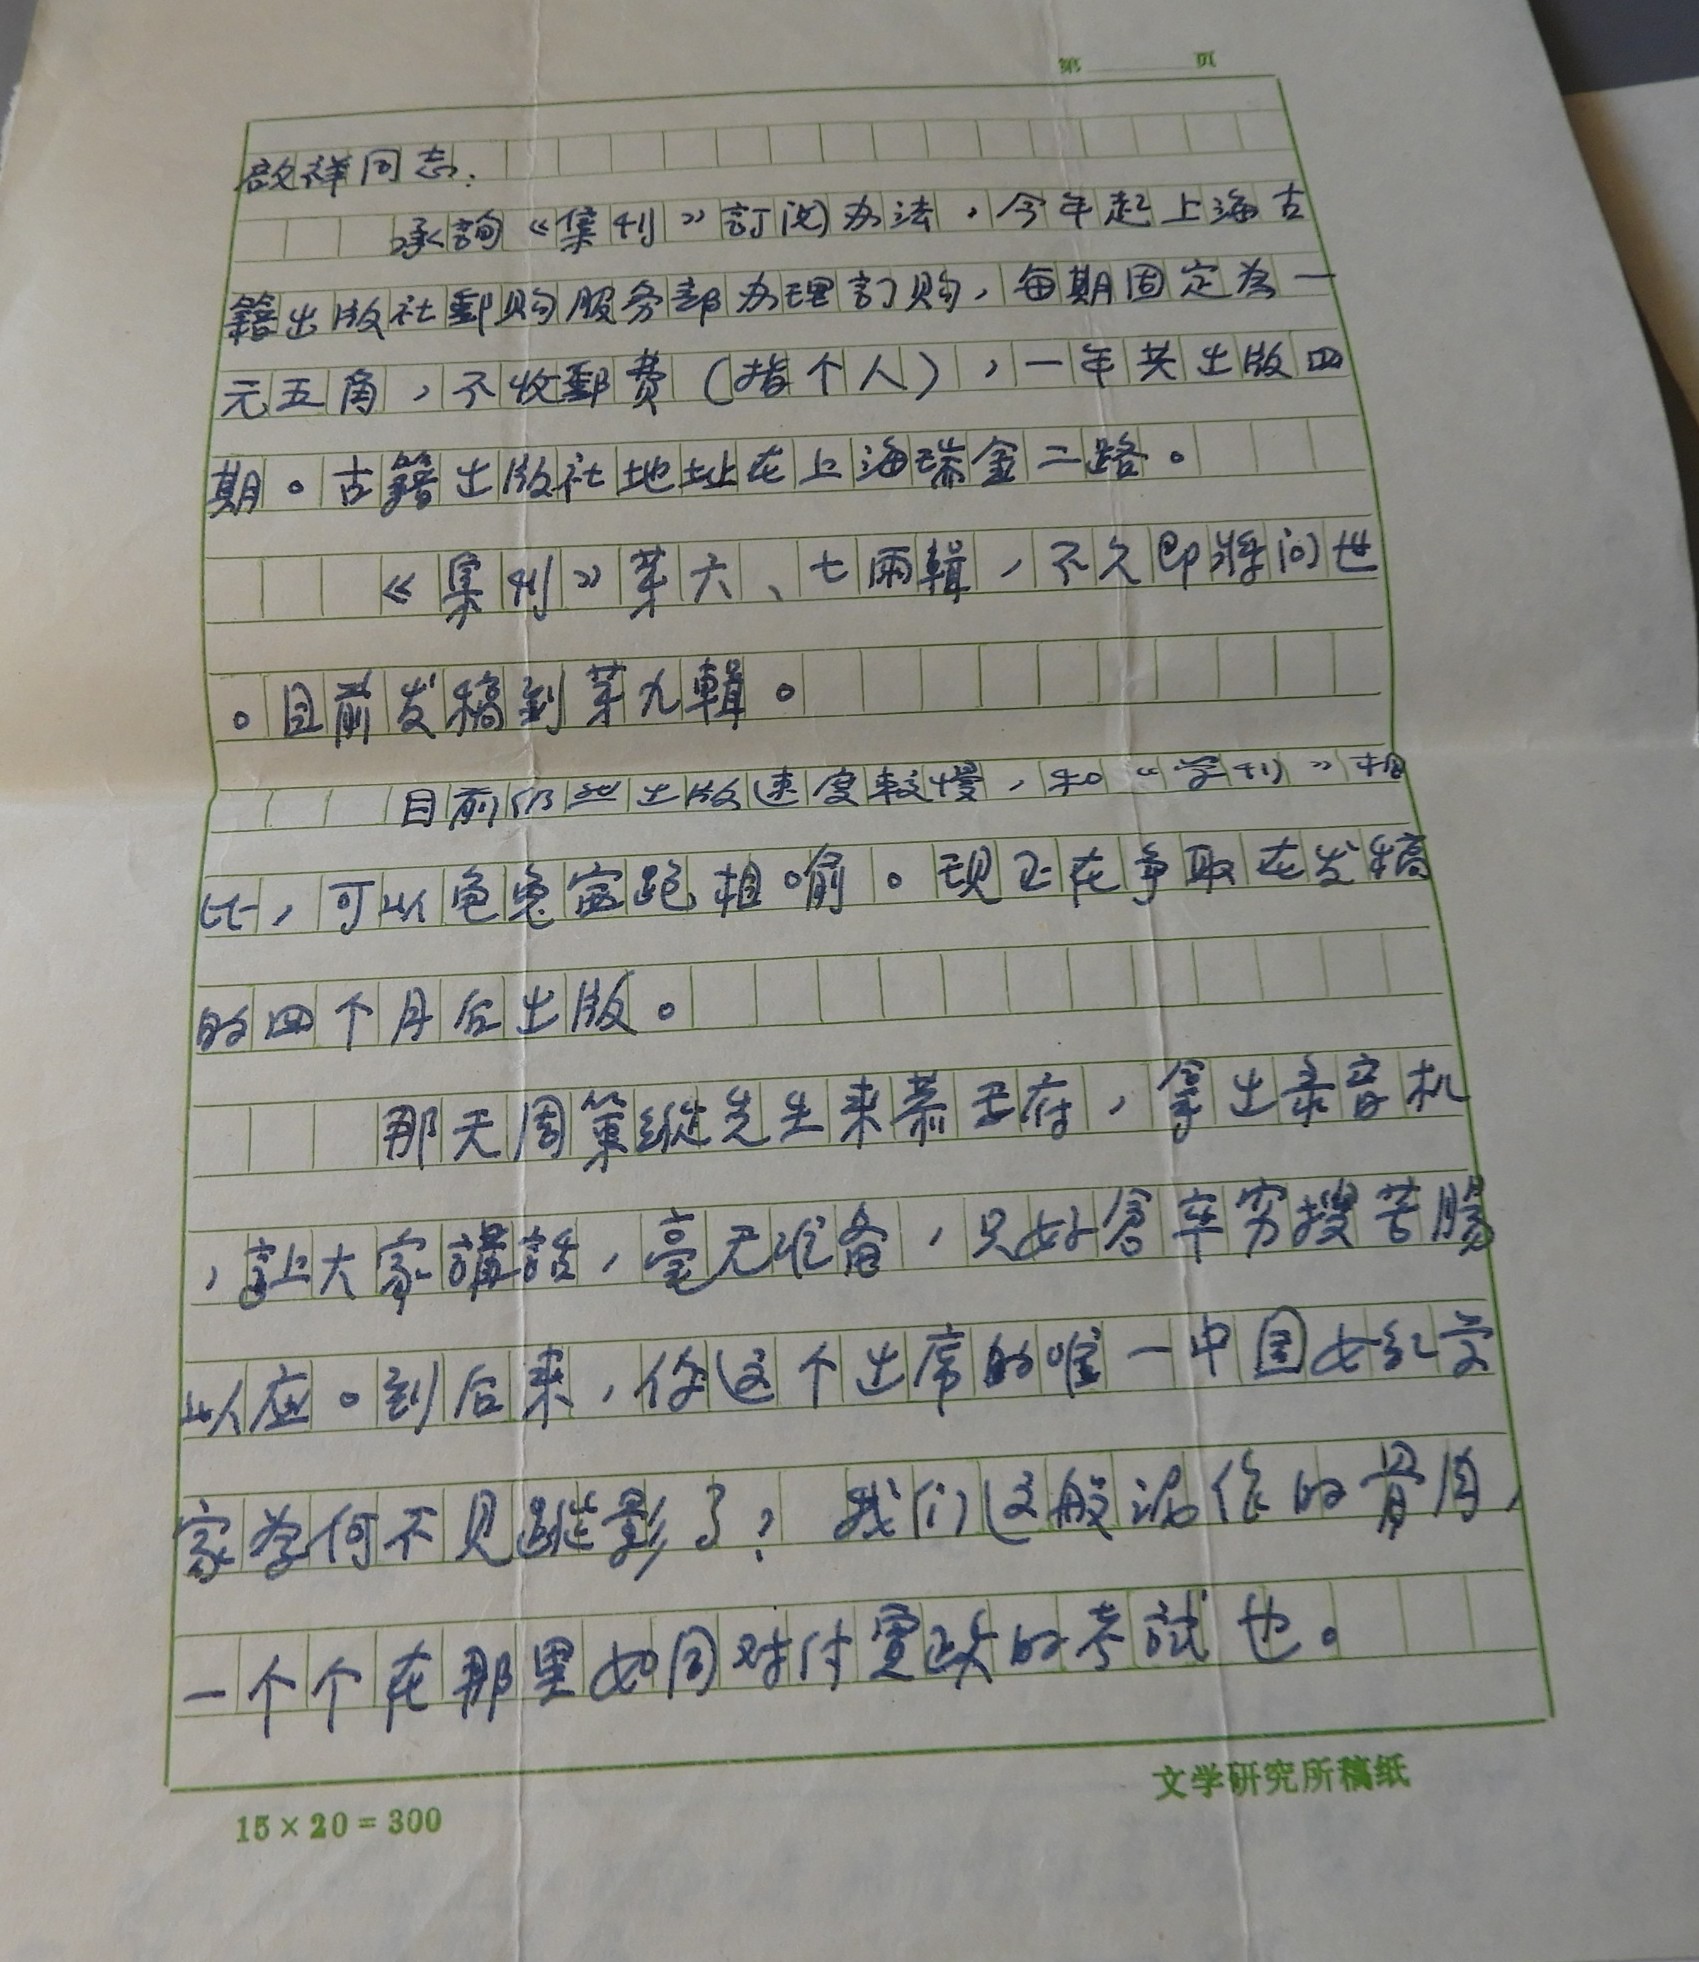 第 页
啟祥同志:
承詢《集刊》訂阅办法，今年起上海古
籍出版社郵购服务部办理訂购，每期固定为一
元五角，不收郵費（指个人），一年共出版四
期。古籍出版社地址在上海瑞金二路。
《集刊》第六、七兩輯，不久即将问世
。目前发稿到第九輯。
目前仍然出版速度較慢，和“学刊”相
比，可以龟兔赛跑相喻。现正在争取在发稿
的四个月后出版。
那天周策縱先生来恭王府，拿出录音机
，让大家講話，毫无准备，只好倉卒穷搜苦腸
以应。到后来，你这个出席的唯一中国女红学
家为何不见踪影了？我们这般泥作的骨肉，
一个个在那里如同对付賈政的考試也。
15×20=300
文学研究所稿纸